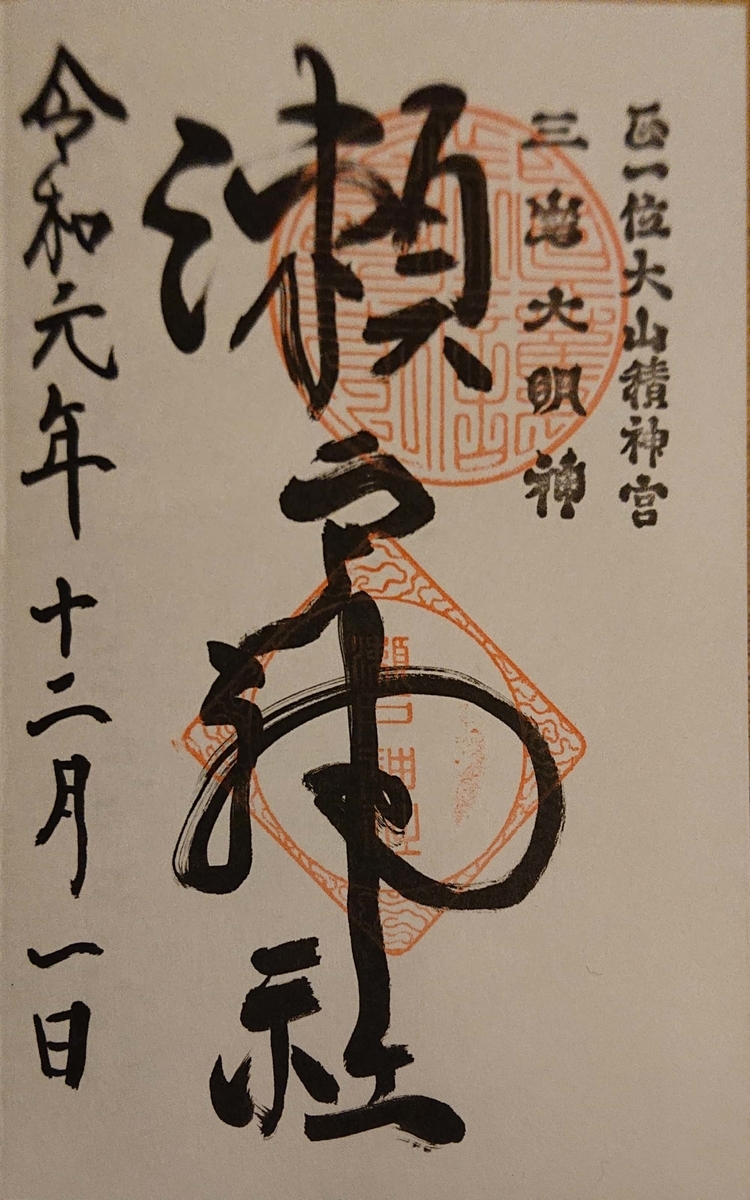 正一位大山積神宮
三嶌大明神
瀬戸神社
令和元年十二月一日
瀬戸神社